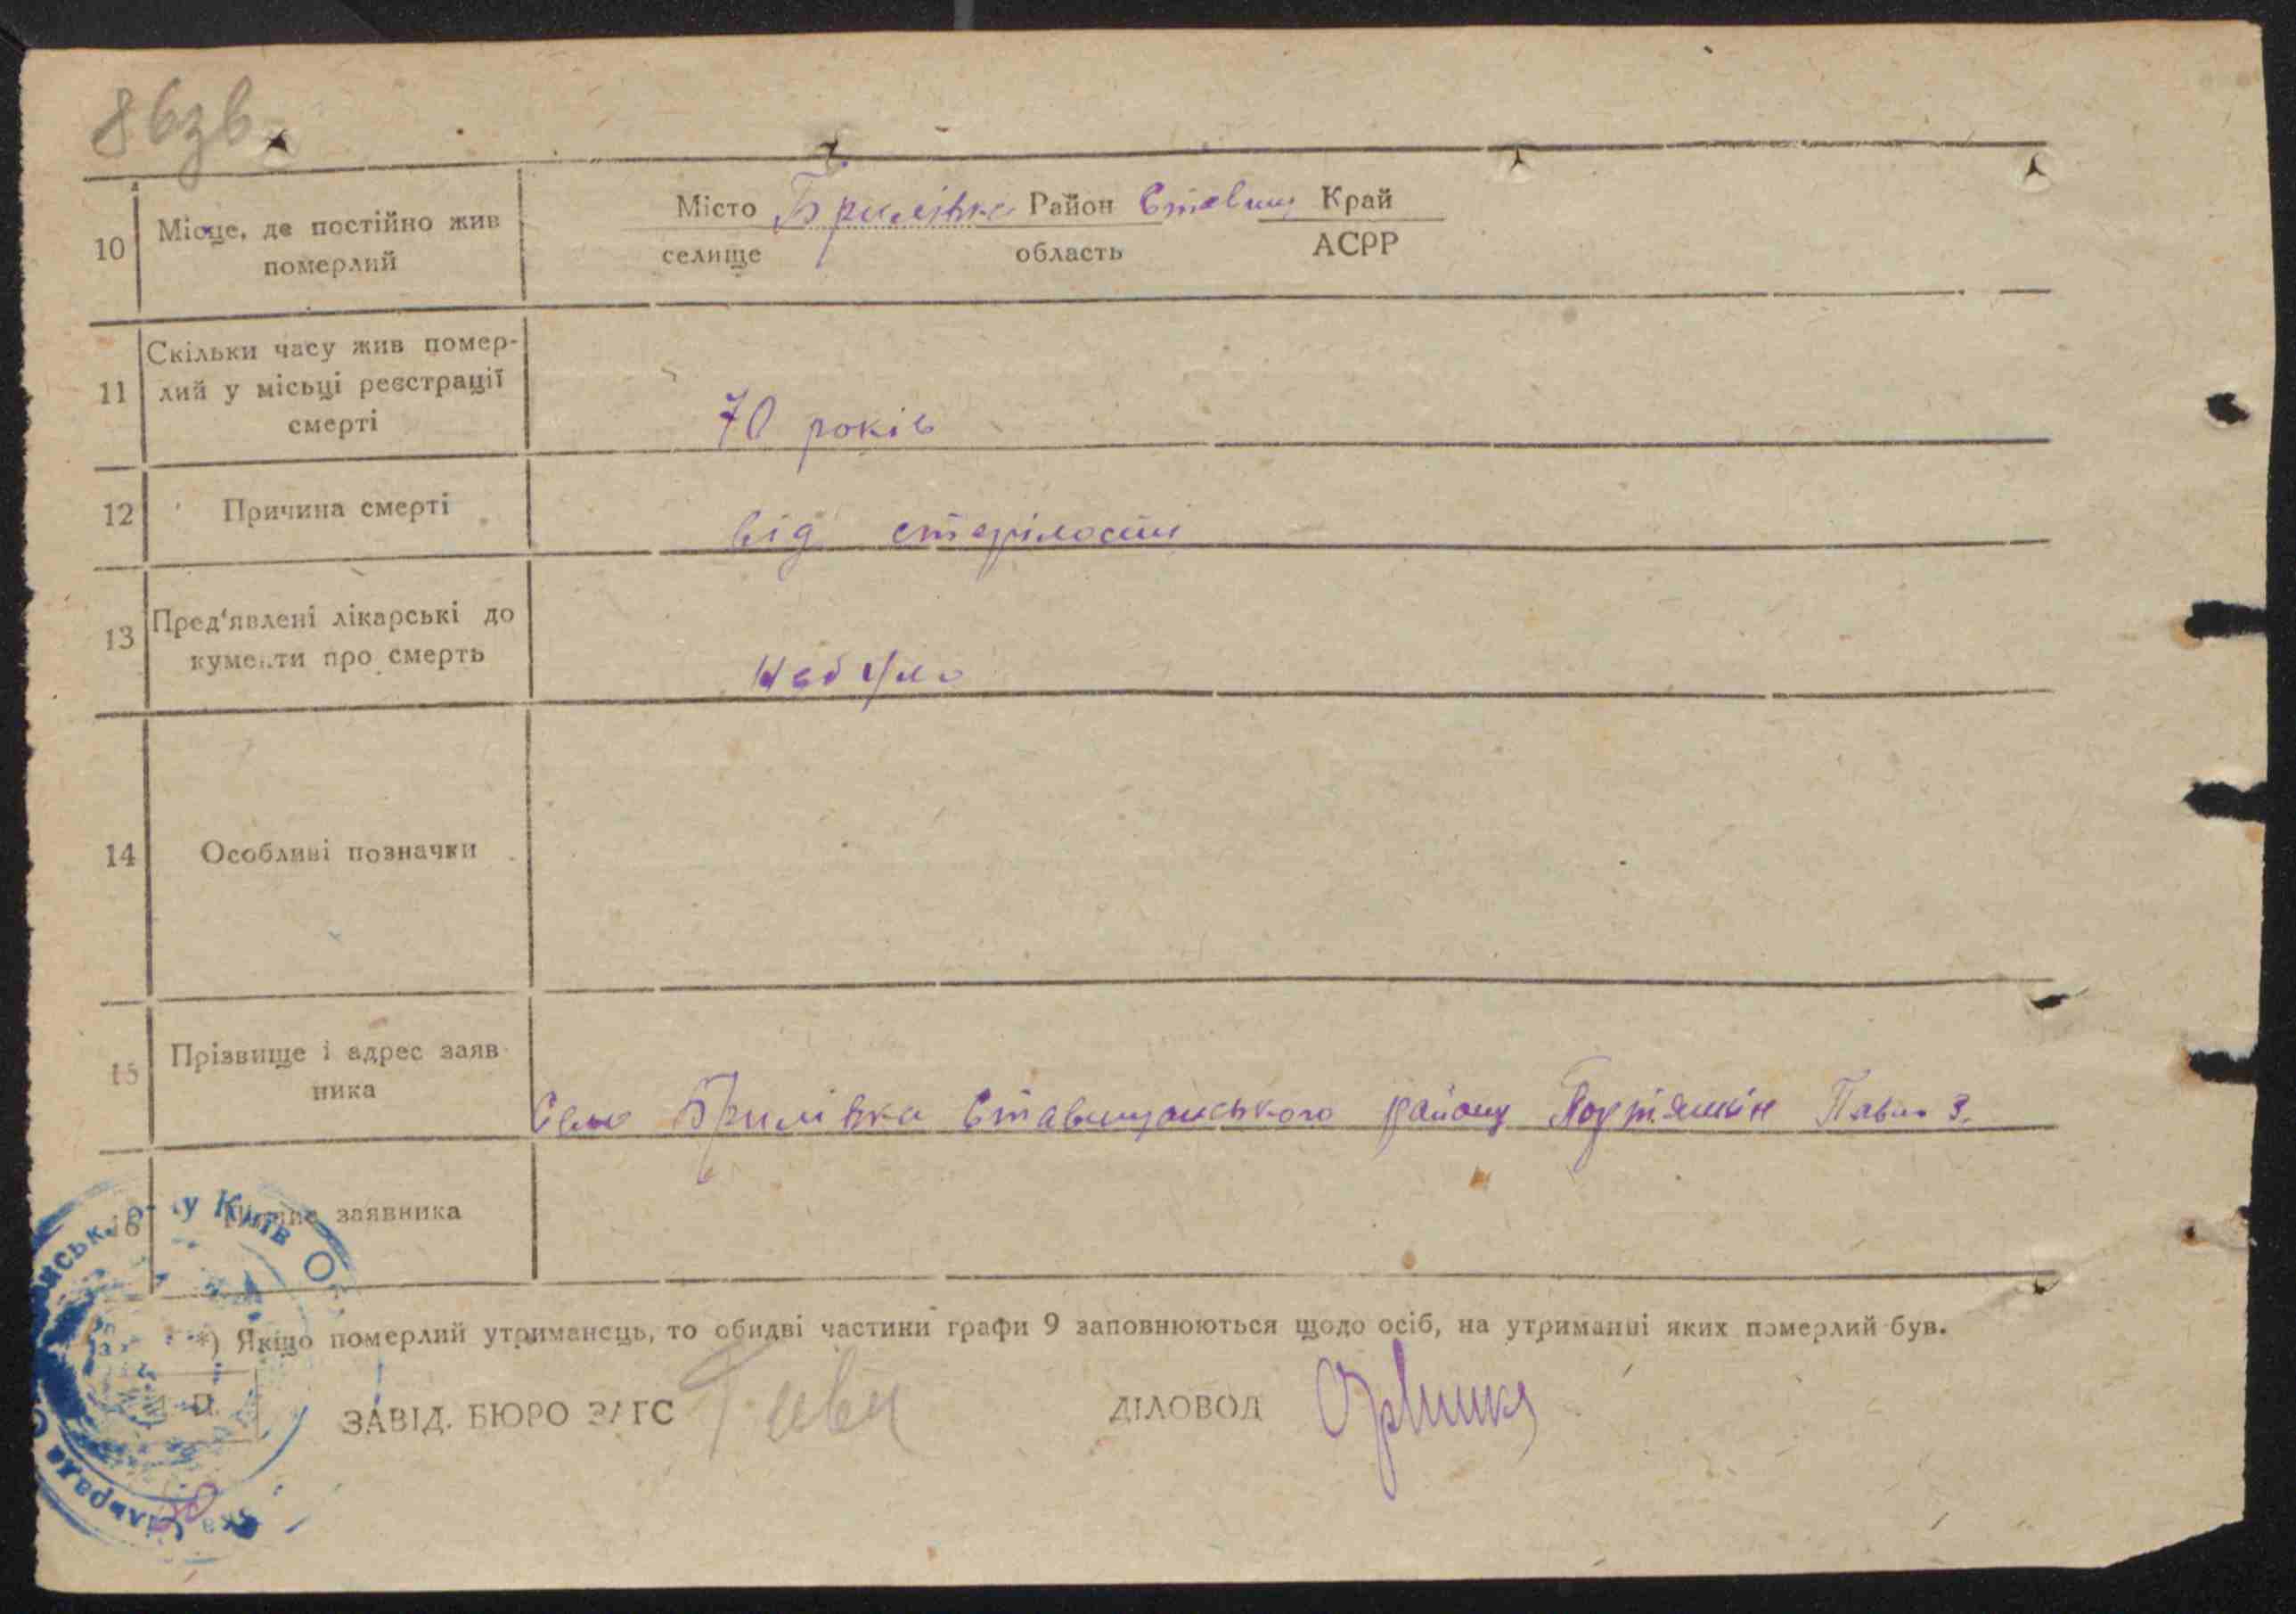 86зв
10 Місце, де постійно жив Місто Брилівка Район Ставищ Край
померлий селище область АСРР
11 Скільки часу жив помер-
лий у місьці реєстрації
смерті 70 років
12 Причина смерті від старілости
13 Пред'явлені лікарські до
кументи про смерть небуло
14 Особливі позначки
15 Прізвище і адрес заяв
ника Село Брилівка Ставищанського району Павло З.
16 заявника
у Київ
*) Якщо померлий утриманець, то обидві частини графи 9 заповнюються щодо осіб, на утриманні яких померлий був.
ЗАВІД. БЮРО ЗАГС ДІЛОВОД